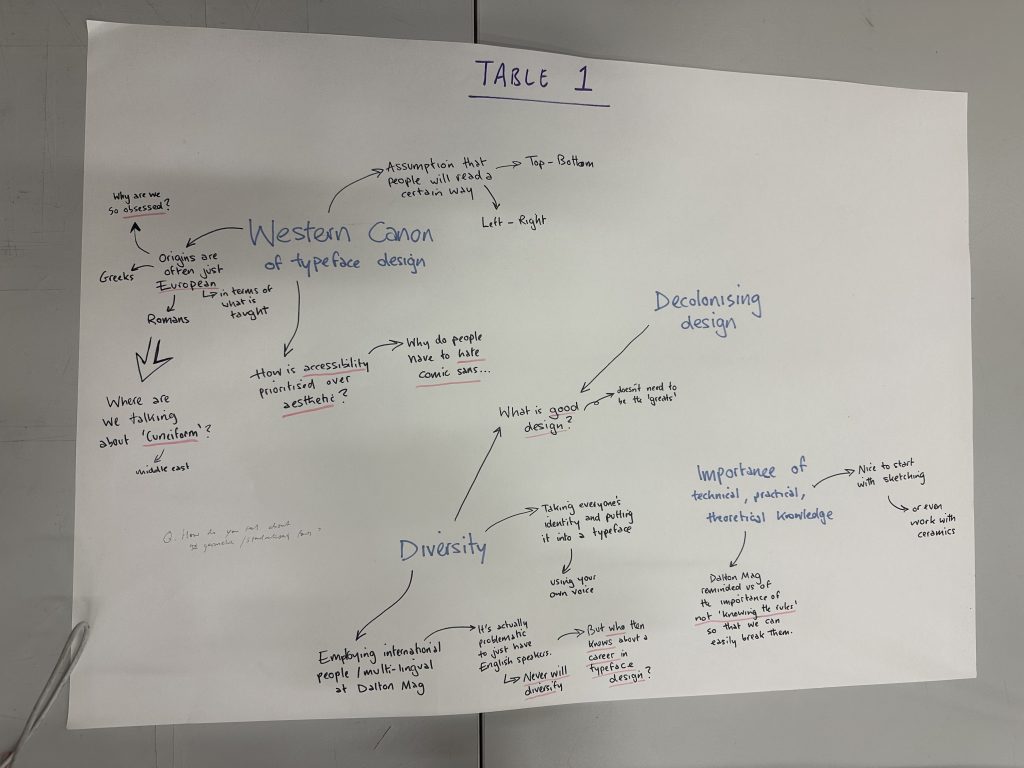 TABLE 1
Assumption that
people will read a
certain way
Top - Bottom
Left - Right
Why are we
so obsessed?
Western Canon
of typeface design
Origins are
often just
European
Greeks
in terms of
what is
taught
Romans
Where are
we talking
about 'Cuneiform'?
middle east
How is accessibility
prioritised over
aesthetic?
Why do people
have to hate
comic sans...
Decolonising
design
What is good
design?
doesn't need to
be the 'greats'
Importance of
technical, practical,
theoretical knowledge
Nice to start
with sketching
or even
work with
ceramics
Dalton Mag
reminded us of
the importance of
not 'knowing the rules'
so that we can
easily break them.
Q. How do you feel about
geometric /
Diversity
Taking everyone's
identity and putting
it into a typeface
using your
own voice
Employing international
people / multi-lingual
at Dalton Mag
It's actually
problematic
to just have
English speakers.
Never will
diversity
But who then
knows about a
career in
typeface
design?